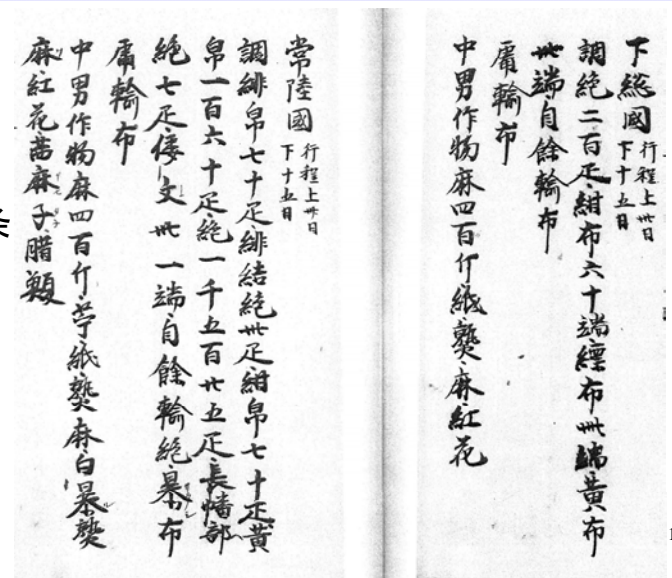 下総國 行程上卅日
下十五日
調絁二百疋紺布六十端縹布卌端黄布
卅端自餘輸布
庸輸布
中男作物麻四百斤紙熟麻紅花
常陸國 行程上卅日
下十五日
調緋帛七十疋緋結絁卅疋紺帛七十疋黄
帛一百六十疋絁一千五百廿五疋長幡部
絁七疋倭文卅一端自餘輸絁暴布
庸輸布
中男作物麻四百斤苧紙熟麻白暴熟
麻紅花茜麻子腊鰒